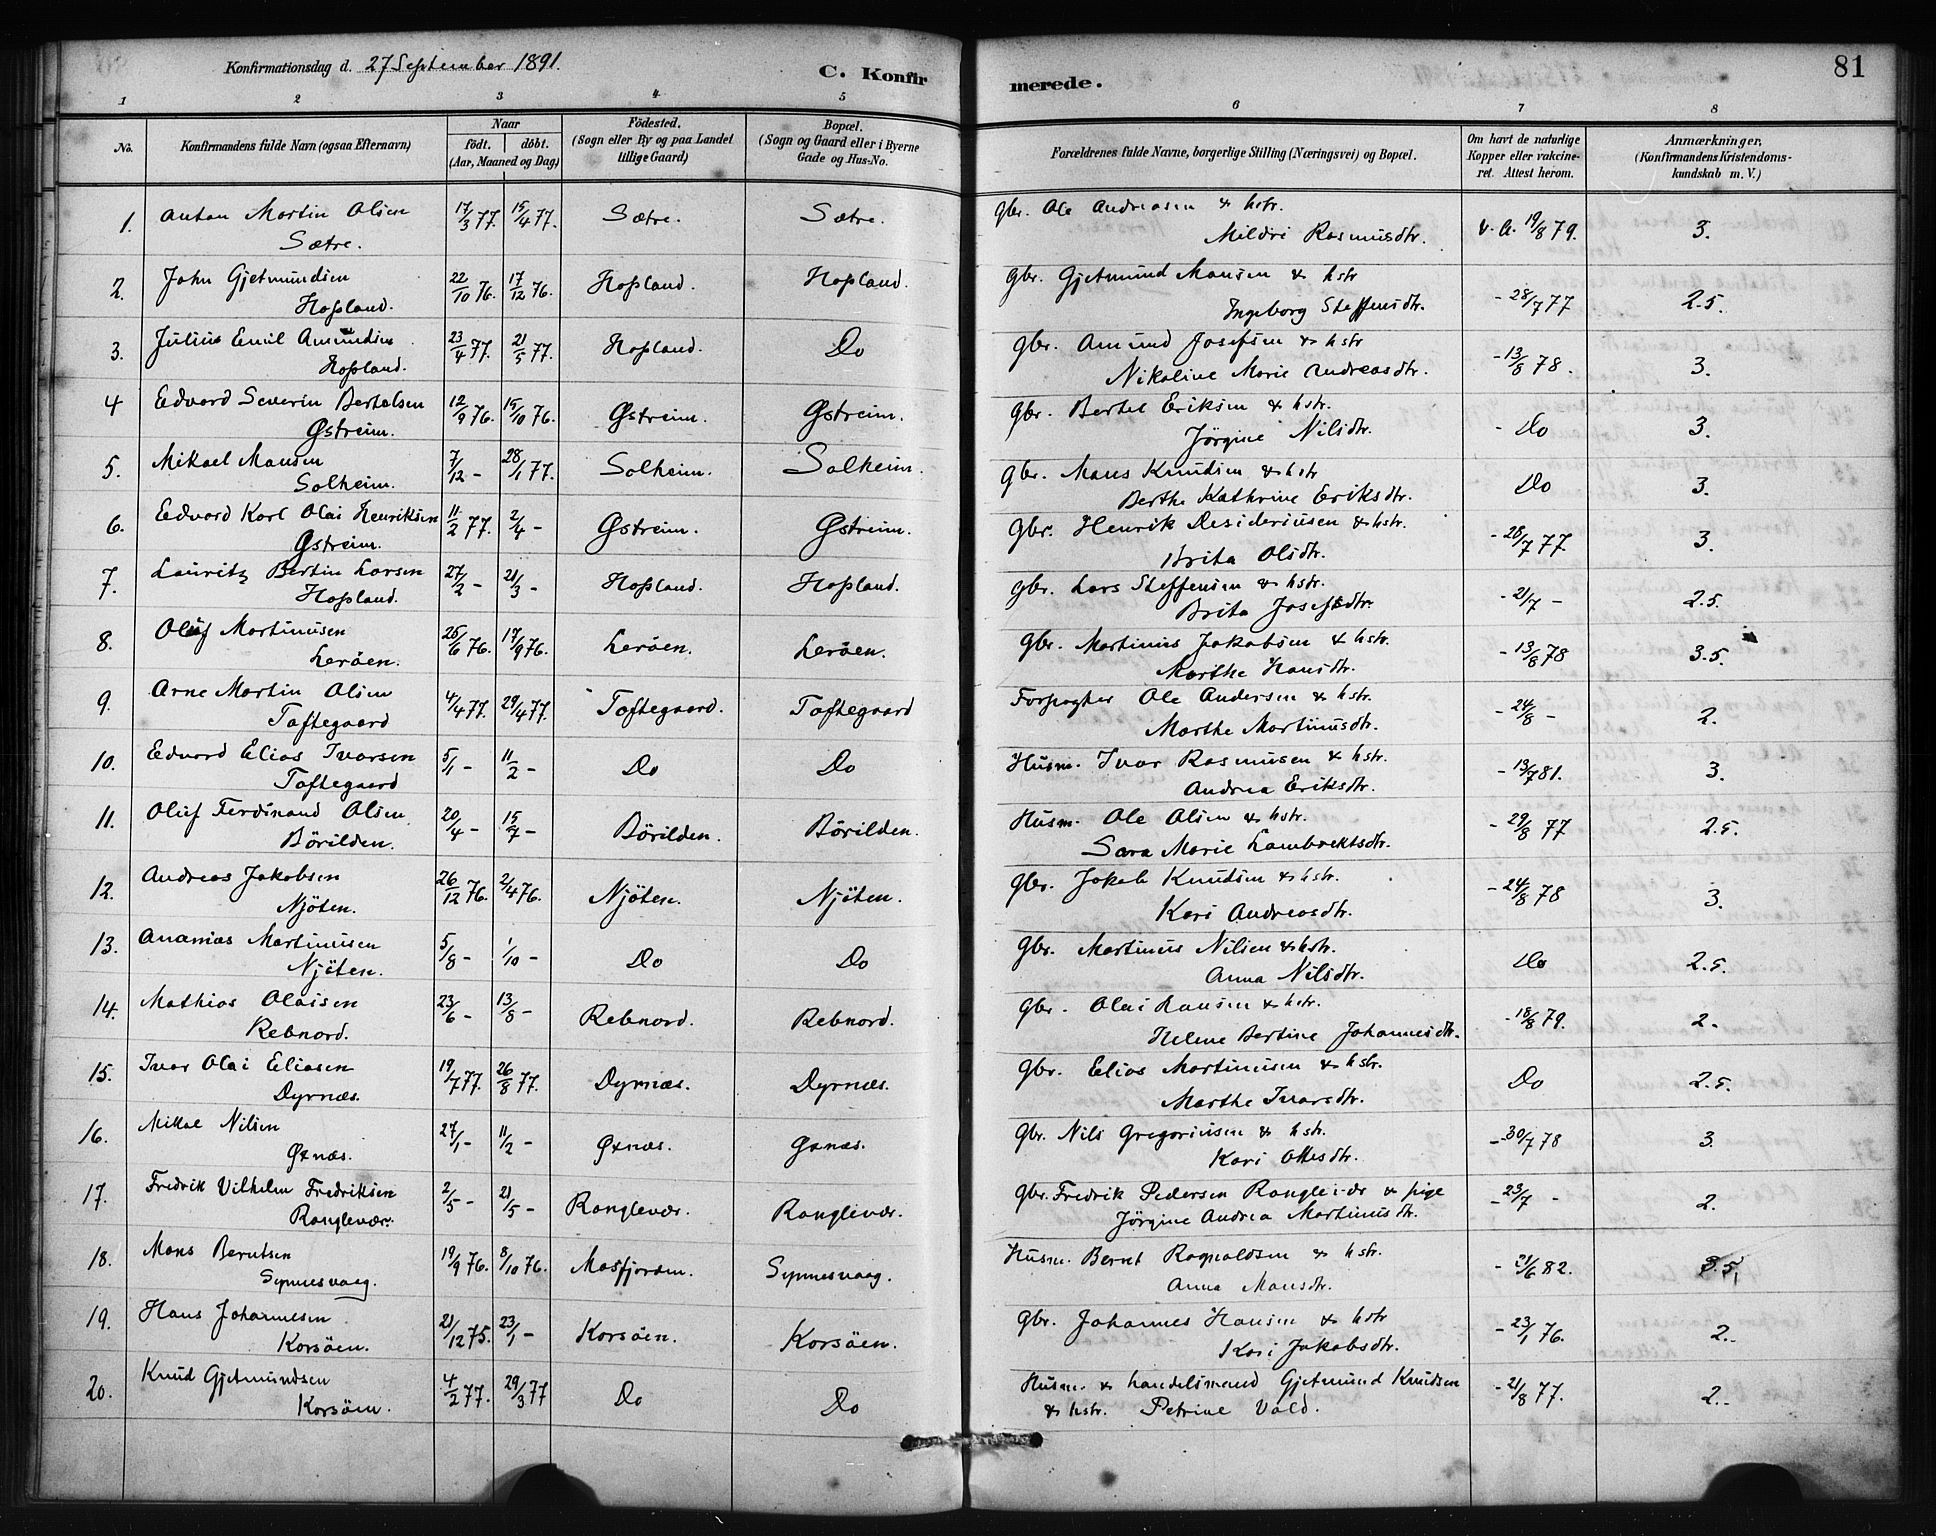 Konfirmationsdag d. 27 September 1891.
C. Konfirmerede.
81
1 2 3 4 5 6 7 8
No.
Konfirmandens fulde Navn (ogsaa Efternavn)
Naar
födt. döbt.
(Aar, Maaned og Dag)
Födested.
(Sogn eller By og paa Landet
tillige Gaard)
Bopæl.
(Sogn og Gaard eller i Byerne
Gade og Hus-No.
Forældrenes fulde Navne, borgerlige Stilling (Næringsvei) og Bopæl.
Om havt de naturlige
Kopper eller vakcine-
ret. Attest herom.
Anmærkninger,
(Konfirmandens Kristendoms-
kundskab m. V.)
1. Anton Martin Olsen 17/3 77. 15/4 77. Sætre. Sætre. Gbr. Ole Andreasen & hstr. v. a. 19/8 79. 3.
Sætre. Mildri Rasmusdtr.
2. John Gjetmundsen 22/10 76. 17/12 76. Hopland. Hopland. Gbr. Gjetmund Mansen & hstr - 28/7 77 2.5.
Hopland. Ingeborg Steffensdtr.
3. Julius Emil Amundsen 23/4 77. 21/5 77. Hopland. Do Gbr. Amund Josefsen & hstr - 13/8 78. 3.
Hopland. Nikoline Marie Andreasdtr.
4 Edvard Severin Bertelsen 12/9 76. 15/10 76. Østreim. Østreim. Gbr. Bertel Eriksen & hstr. - Do 3.
Østreim. Jörgine Nilsdtr.
5. Mikael Mansen 7/12 - 28/1 77. Solheim. Solheim. Gbr. Mans Knudsen & hstr Do 3.
Solheim. Berthe Kathrine Eriksdtr.
6. Edvard Karl Olai Henriksen 11/2 77. 2/4 - Østreim. Østreim. Gbr. Henrik Desideriusen & hstr. - 28/7 77. 3.
Østreim. Brita Olsdtr.
7. Lauritz Bertin Larsen 27/2 - 21/3 - Hopland. Hopland. Gbr. Lars Steffensen & hstr. - 21/7 - 2.5.
Hopland. Brita Josefsdtr.
8. Oluf Martinusen 25/6 76. 17/9 76. Leröen. Leröen. Gbr. Martinus Jakobsen & hstr. - 13/8 78 3.5.
Leröen. Marthe Hansdtr.
9. Arne Martin Olsen 4/4 77. 29/4 77. Toftegaard. Toftegaard Forpagter Ole Andersen & hstr. - 24/8 - 2.
Toftegaard Marthe Martinusdtr.
10. Edvard Elias Ivarsen 5/1 - 11/2 - Do Do Husm. Ivar Rasmusen & hstr. - 13/7 81. 3.
Toftegaard Andrea Eriksdtr.
11. Oluf Ferdinand Olsen 20/4 - 15/7 - Börilden. Börilden. Husm. Ole Olsen & hstr. - 29/8 77 2.5.
Börilden. Sara Marie Lambrektsdtr.
12. Andreas Jakobsen 26/12 76. 2/4 76. Njöten. Njöten. Gbr. Jakob Knudsen & hstr. - 24/8 78 3.
Njöten. Kari Andreasdtr.
13. Ananias Martinusen 5/8 - 1/10 - Do Do Gbr. Martinus Nilsen & hstr. Do 2.5.
Njöten. Anna Nilsdtr.
14. Mathias Olaisen 23/6 - 13/8 - Rebnord. Rebnord. Gbr. Olai Hansen & hstr. - 18/8 79. 2.
Rebnord. Helene Bertine Johannesdtr.
15. Ivar Olai Eliasen 19/7 77. 26/8 77. Dyrnæs. Dyrnæs. Gbr. Elias Martinusen & hstr. Do 2.5.
Dyrnæs. Marthe Ivarsdtr.
16. Mikal Nilsen 27/1 - 11/2 - Øxnæs. Øxnæs. Gbr. Nils Gregoriusen & hstr. - 30/7 78 3.
Øxnæs. Kari Ottesdtr.
17. Fredrik Vilhelm Fredriksen 2/5 - 21/5 - Ranglevær. Ranglevær. Gbr. Fredrik Pedersen & pige - 23/7 - 2.
Ranglevær. Jörgine Andrea Martinusdtr.
18. Mons Berntsen 19/9 76. 8/10 76. Masfjorden. Synnesvaag. Husm. Bernt Ragnaldsen & hstr. - 21/6 82.
Synnesvaag. Anna Monsdtr.
19. Hans Johannesen 21/12 75. 23/1 - Korsöen. Korsöen. Gbr. Johannes Hansen & hstr - 23/1 76. 2.
Korsöen. Kari Jakobsdtr.
20. Knud Gjetmundsen 4/2 77. 29/3 77 Do Do Husm. & handelsmand Gjetmund Knudsen - 21/8 77. 2.
Korsöen. & hstr. Petrine Vold.